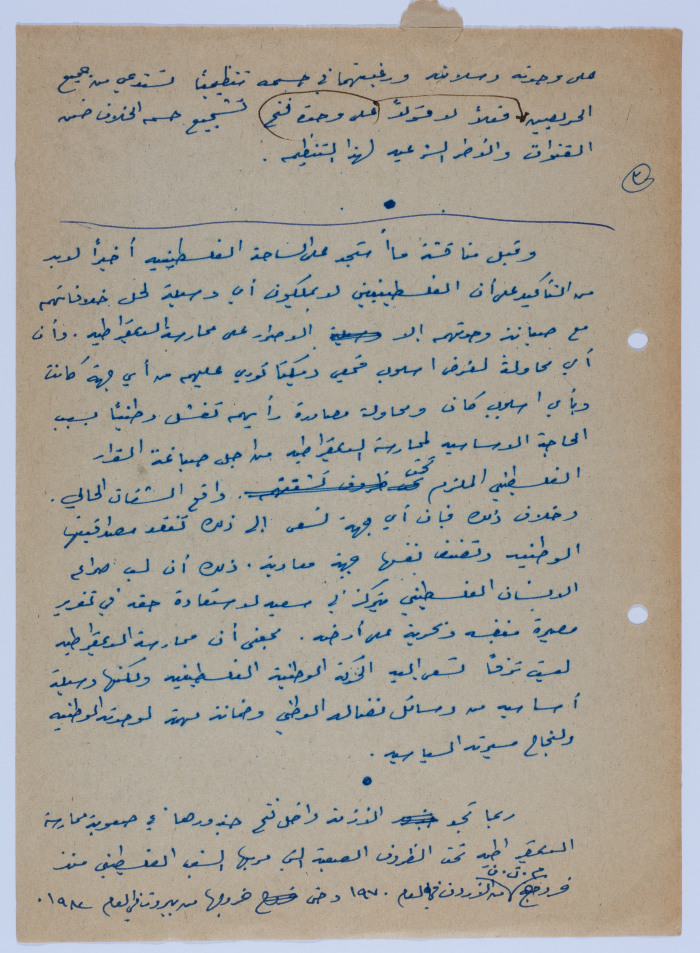 على وحدته وسلامته ورغبتهما في حسمه تنظيمياً تستدعي من جميع
الحريصين فعلاً لا قولاً على وحدة فتح تشجيع حسم الخلاف ضمن
القنوات والأطر الشرعية لهذا التنظيم .
٢
وقبل مناقشة ما استجد على الساحة الفلسطينية أخيراً لابد
من التأكيد على أن الفلسطينيين لا يملكون أي وسيلة لحل خلافاتهم
مع صيانة وحدتهم إلا وسيلة الاصرار على ممارسة الديمقراطية . وأن
أي محاولة لفرض اسلوب قمعي ديكتاتوري عليهم من أي جهة كانت
وبأي اسلوب كان ومحاولة مصادرة رأيهم تفشل وطنياً بسبب
الحاجة الاساسية لممارسة الديمقراطية من اجل صياغة القرار
الفلسطيني الملزم تحت ظروف واقع الشتات الحالي .
وخلاف ذلك فإن أي جهة تسعى إلى ذلك تفقد مصداقيتها
الوطنية وتصنف نفسها جهة معادية . ذلك أن لب صراع
الانسان الفلسطيني يتركز في سعيه لاستعادة حقه في تقرير
مصيره بنفسه وبحرية على أرضه . بمعنى أن ممارسة الديمقراطية
ليست ترفاً تسعى اليه الحركة الوطنية الفلسطينية ولكنها وسيلة
أساسية من وسائل نضاله الوطني وضمانة مهمة لوحدته الوطنية
ولنجاح مسيرته السياسية .
ربما تجد الأزمة داخل فتح جذورها في صعوبة ممارسة
الديمقراطية تحت الظروف الصعبة التي مر بها الشعب الفلسطيني منذ
خروج م.ت.ف. من الأردن في العام ١٩٧٠ وحتى خروجها من بيروت في العام ١٩٨٢.